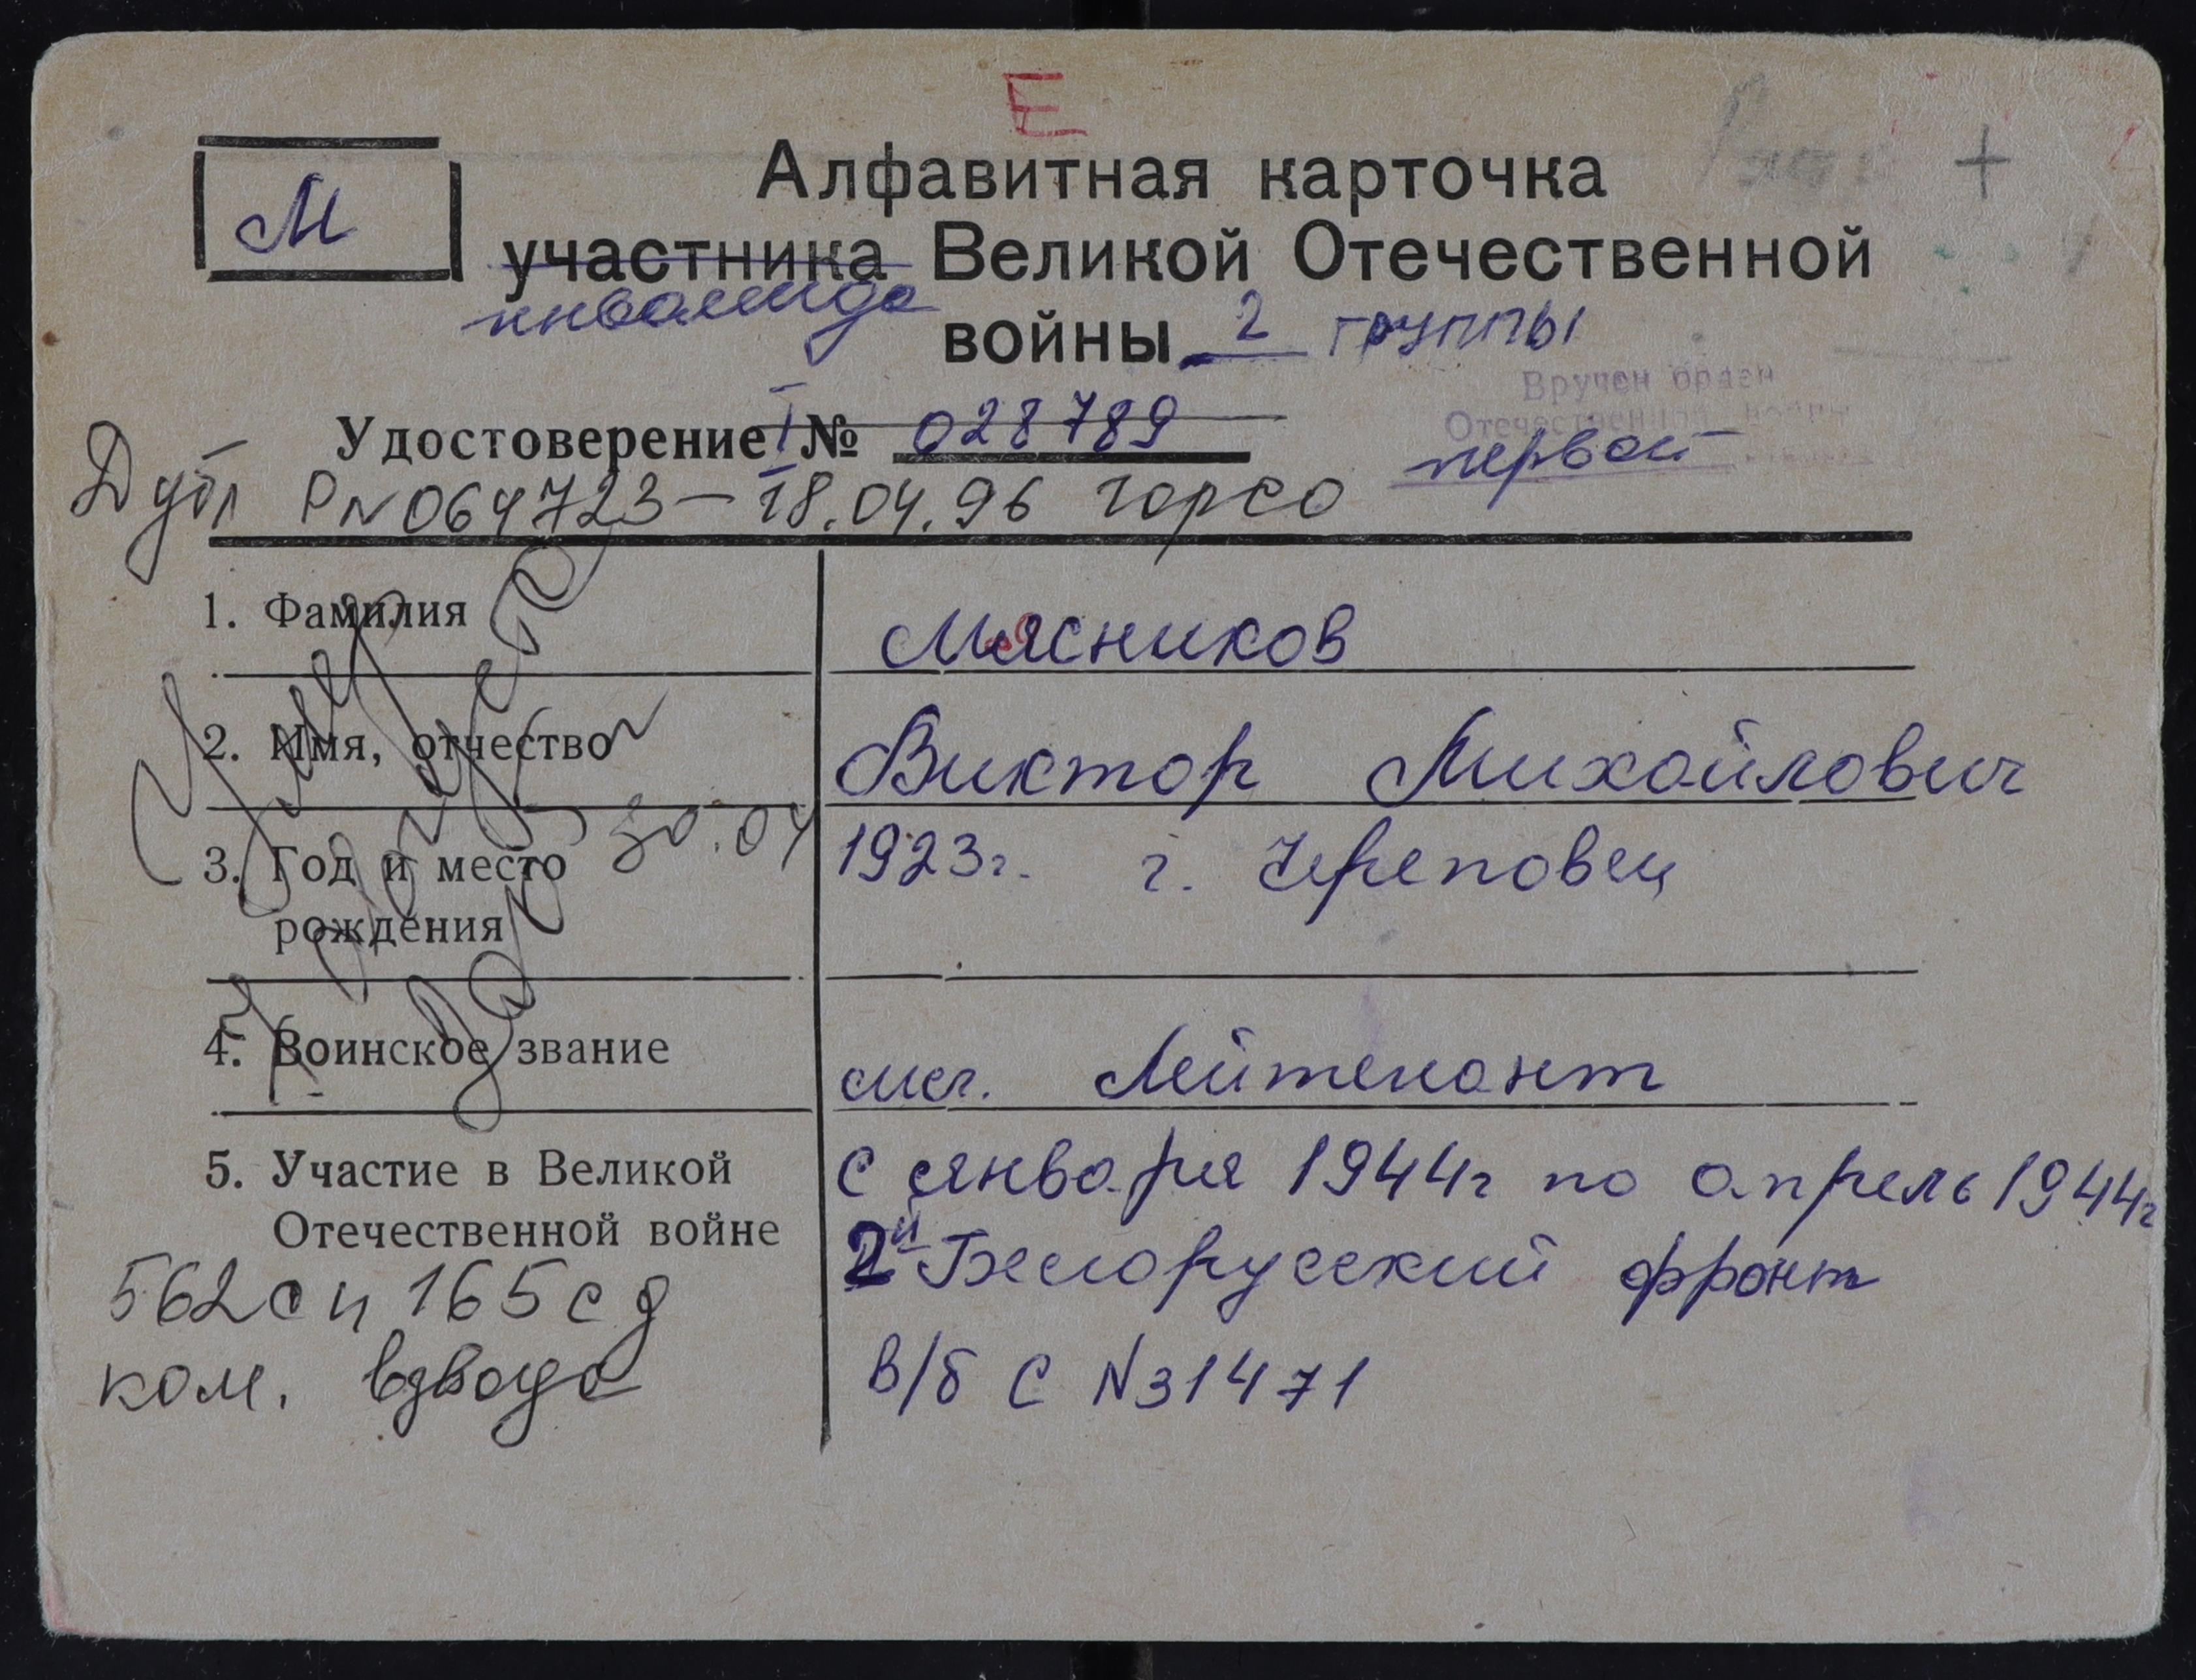 Е
М
Алфавитная карточка
участника Великой Отечественной
инвалида
войны 2 группы
Вручен орден
Отечественной войны
первой
Удостоверение I № 028789
Дубл РN064723 - 18.04.96 горсо
1. Фамилия
Мясников
2. Имя, отчество
Виктор Михайлович
3. Год и место
рождения
1923г. г. Череповец
30.04
4. Воинское звание
мл. Лейтенант
5. Участие в Великой
Отечественной войне
с января 1944г по апрель 1944г
2й Белорусский фронт
в/б С N31471
562 сп 165 сд
ком. взвода